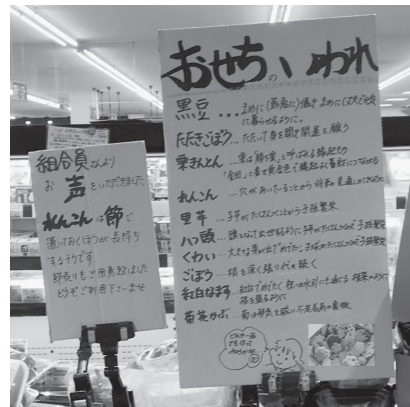 組合員さんより
お声をいただきました
れんこんは節で
置いておくほうが長持ち
するそうです
節売りもご用意致しました
どうぞご利用下さいませ
おせちのいわれ
黒豆…まめに(勤勉に)働き まめに(丈夫で元気)
に暮らせるように。
たたきごぼう…たたいて身を開き開運を願う
栗きんとん…栗は「勝ち栗」と呼ばれる縁起もの
れんこん…穴があいていることから将来の見通しが
里芋…子芋がたくさんつくことから子孫繁栄
八ツ頭…頭となって出世するように 子芋がたくさんつくので子孫繁栄
くわい…大きな芽が出て「めでたい」子球がたくさんつくので子孫繁栄
ごぼう…根を深く張り代々続く
紅白なます…紅白でめでたく 祝の水引にも通じる 根菜のように
根を張るように
菊花かぶ…菊は邪気を祓い不老長寿の象徴